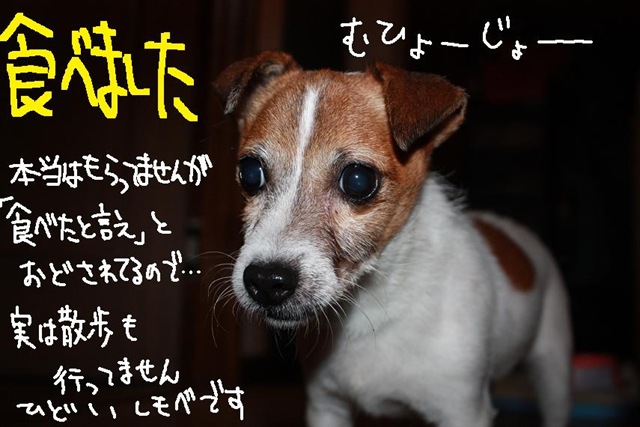 食べました
むひょーじょー
本当はもらってませんが
「食べたと言え」と
おどされてるので…
実は散歩も
行ってません
ひどいしもべです